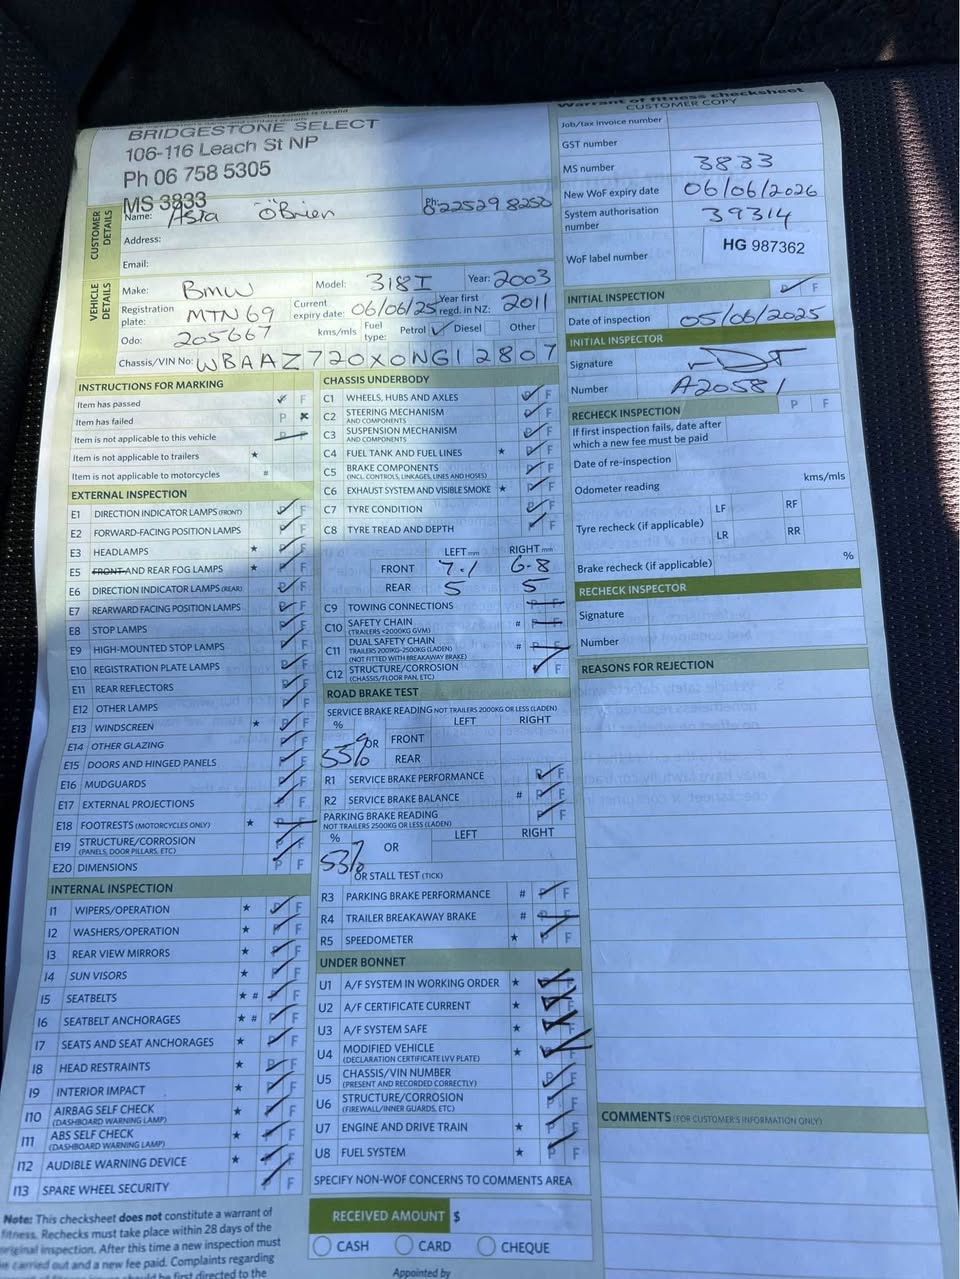 Warrant of fitness checksheet
CUSTOMER COPY
BRIDGESTONE SELECT
106-116 Leach St NP
Ph 06 758 5305
MS 3833
CUSTOMER DETAILS
Name: Asta O'Brien Ph:
Address:
Email:
VEHICLE DETAILS
Make: BMW Model: 318I Year: 2003
Registration plate: MTN69 Current expiry date: 06/06/25 Year first regd. in NZ: 2011
Odo: 205667 kms/mls Fuel type: Petrol ✓ Diesel Other
Chassis/VIN No: WBAAZ720X0NG12807
INSTRUCTIONS FOR MARKING
Item has passed ✓ F
Item has failed P ×
Item is not applicable to this vehicle P F
Item is not applicable to trailers ★
Item is not applicable to motorcycles #
EXTERNAL INSPECTION
E1 DIRECTION INDICATOR LAMPS (FRONT) P F
E2 FORWARD-FACING POSITION LAMPS P F
E3 HEADLAMPS ★ P F
E5 FRONT AND REAR FOG LAMPS ★ P F
E6 DIRECTION INDICATOR LAMPS (REAR) P F
E7 REARWARD FACING POSITION LAMPS P F
E8 STOP LAMPS P F
E9 HIGH-MOUNTED STOP LAMPS P F
E10 REGISTRATION PLATE LAMPS P F
E11 REAR REFLECTORS P F
E12 OTHER LAMPS P F
E13 WINDSCREEN ★ P F
E14 OTHER GLAZING P F
E15 DOORS AND HINGED PANELS P F
E16 MUDGUARDS P F
E17 EXTERNAL PROJECTIONS P F
E18 FOOTRESTS (MOTORCYCLES ONLY) ★ P F
E19 STRUCTURE/CORROSION P F
(PANELS, DOOR PILLARS, ETC)
E20 DIMENSIONS P F
INTERNAL INSPECTION
I1 WIPERS/OPERATION ★ P F
I2 WASHERS/OPERATION ★ P F
I3 REAR VIEW MIRRORS ★ P F
I4 SUN VISORS ★ P F
I5 SEATBELTS ★ # P F
I6 SEATBELT ANCHORAGES ★ # P F
I7 SEATS AND SEAT ANCHORAGES ★ P F
I8 HEAD RESTRAINTS ★ P F
I9 INTERIOR IMPACT ★ P F
I10 AIRBAG SELF CHECK ★ P F
(DASHBOARD WARNING LAMP)
I11 ABS SELF CHECK ★ P F
(DASHBOARD WARNING LAMP)
I12 AUDIBLE WARNING DEVICE ★ P F
I13 SPARE WHEEL SECURITY P F
Note: This checksheet does not constitute a warrant of
fitness. Rechecks must take place within 28 days of the
original inspection. After this time a new inspection must
be carried out and a new fee paid. Complaints regarding
should be first directed to the
CHASSIS UNDERBODY
C1 WHEELS, HUBS AND AXLES P F
C2 STEERING MECHANISM P F
AND COMPONENTS
C3 SUSPENSION MECHANISM P F
AND COMPONENTS
C4 FUEL TANK AND FUEL LINES ★ P F
C5 BRAKE COMPONENTS P F
(INCL. CONTROLS, LINKAGES, LINES AND HOSES)
C6 EXHAUST SYSTEM AND VISIBLE SMOKE ★ P F
C7 TYRE CONDITION P F
C8 TYRE TREAD AND DEPTH P F
LEFT mm RIGHT mm
FRONT 7.1 6.8
REAR 5 5
C9 TOWING CONNECTIONS P F
C10 SAFETY CHAIN # P F
(TRAILERS <2000KG GVM)
C11 DUAL SAFETY CHAIN # P F
TRAILERS 2001KG-2500KG (LADEN)
(NOT FITTED WITH BREAKAWAY BRAKE)
C12 STRUCTURE/CORROSION P F
(CHASSIS/FLOOR PAN, ETC)
ROAD BRAKE TEST
SERVICE BRAKE READING NOT TRAILERS 2000KG OR LESS (LADEN)
% LEFT RIGHT
55% OR FRONT
REAR
R1 SERVICE BRAKE PERFORMANCE P F
R2 SERVICE BRAKE BALANCE # P F
PARKING BRAKE READING P F
NOT TRAILERS 2500KG OR LESS (LADEN)
% LEFT RIGHT
53% OR
OR STALL TEST (TICK)
R3 PARKING BRAKE PERFORMANCE # P F
R4 TRAILER BREAKAWAY BRAKE # P F
R5 SPEEDOMETER ★ P F
UNDER BONNET
U1 A/F SYSTEM IN WORKING ORDER ★ P F
U2 A/F CERTIFICATE CURRENT ★ P F
U3 A/F SYSTEM SAFE ★ P F
U4 MODIFIED VEHICLE ★ P F
(DECLARATION CERTIFICATE LVV PLATE)
U5 CHASSIS/VIN NUMBER P F
(PRESENT AND RECORDED CORRECTLY)
U6 STRUCTURE/CORROSION P F
(FIREWALL/INNER GUARDS, ETC)
U7 ENGINE AND DRIVE TRAIN ★ P F
U8 FUEL SYSTEM ★ P F
SPECIFY NON-WOF CONCERNS TO COMMENTS AREA
RECEIVED AMOUNT $
CASH CARD CHEQUE
Appointed by
Job/tax invoice number
GST number
MS number 3833
New WoF expiry date 06/06/2026
System authorisation number 39314
WoF label number HG 987362
INITIAL INSPECTION P F
Date of inspection 05/06/2025
INITIAL INSPECTOR
Signature
Number A20581
RECHECK INSPECTION P F
If first inspection fails, date after
which a new fee must be paid
Date of re-inspection
Odometer reading kms/mls
Tyre recheck (if applicable) LF RF
LR RR
Brake recheck (if applicable) %
RECHECK INSPECTOR
Signature
Number
REASONS FOR REJECTION
COMMENTS (FOR CUSTOMER'S INFORMATION ONLY)